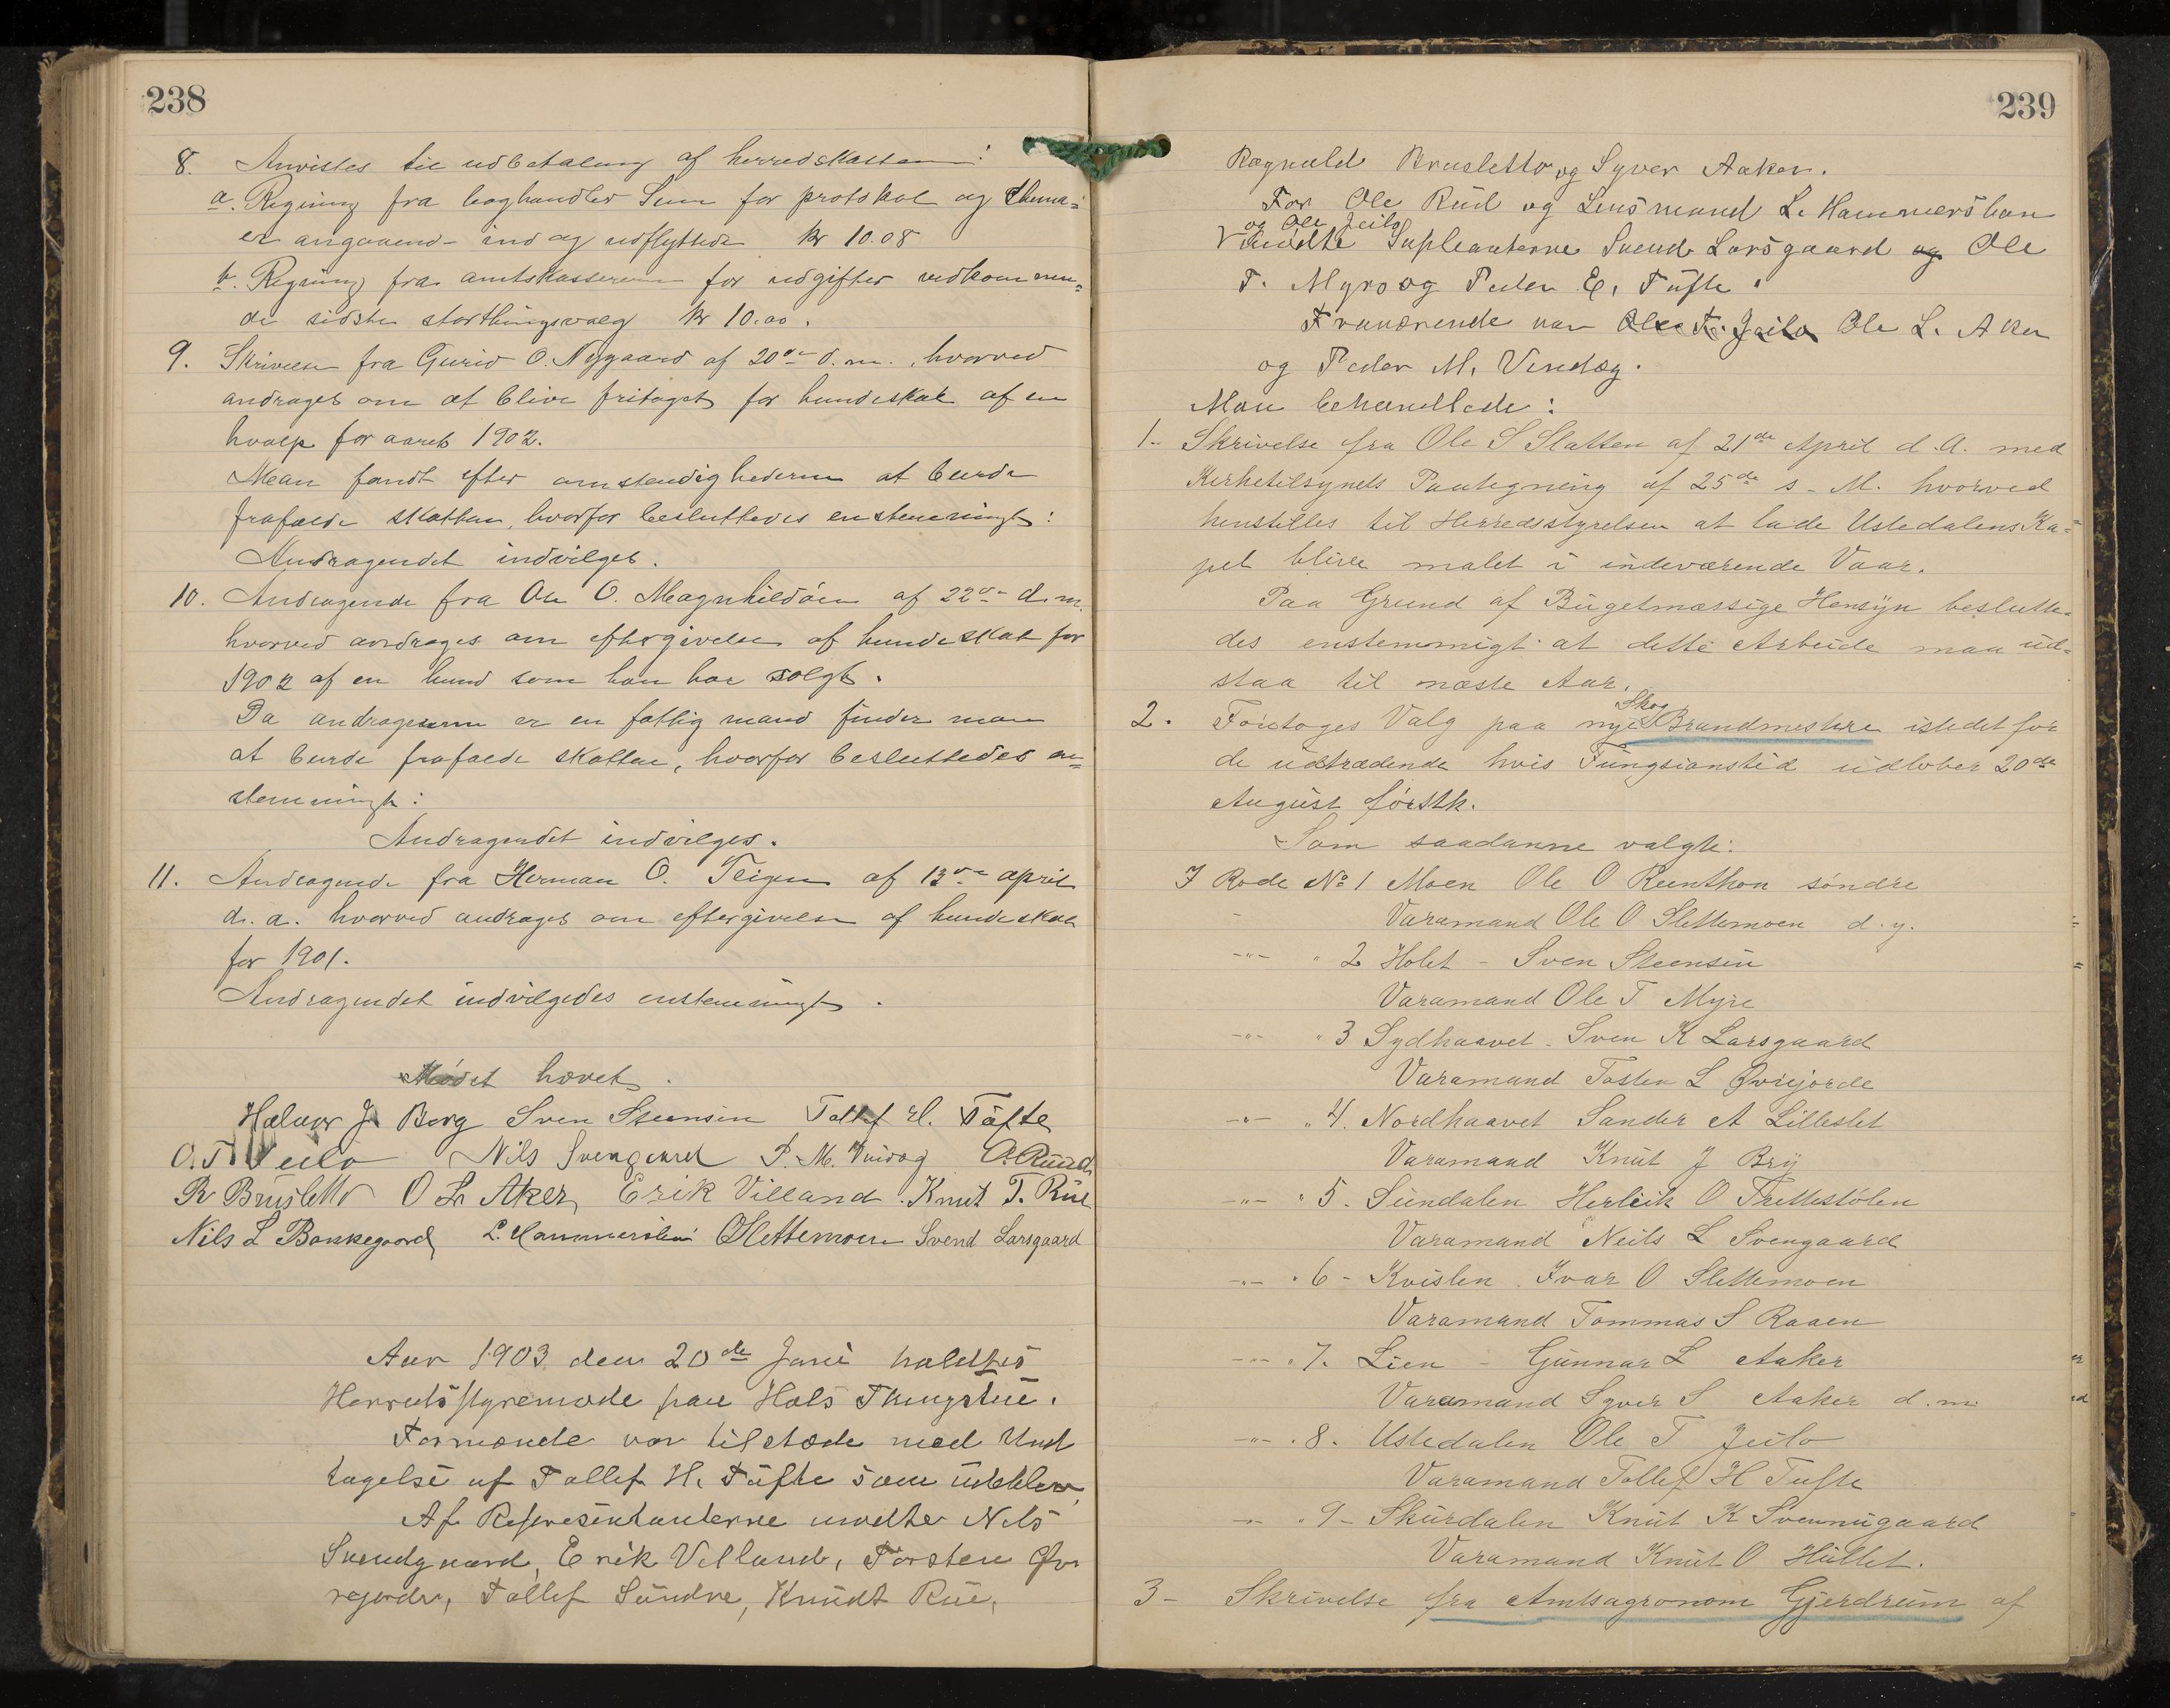 238
8. Anvistes til udbetaling af herredskassen:
a. Regning fra boghandler Sem for protokol og skema=
er angaaend- ind og udflyttede kr 10.08
b. Regning fra amtskassereren for udgifter vedkommen=
de sidste storthingsvalg kr 10.00.
9. Skrivelse fra Gurid O. Nygaard af 20de d.m., hvorved
andrages om at blive fritaget for hundeskat af en
hvalp for aaret 1902.
Man fandt efter omstendighederne at burde
frafalde skatten, hvorfor besluttedes enstemmigt:
Andragendet indvilges.
10. Andragende fra Ole O. Magnhildøen af 22de d.m.
hvorved andrages om eftergivelse af hundeskat for
1902 af en hund som han har solgt.
Da andrageren er en fattig mand finder man
at burde frafalde skatten, hvorfor besluttedes en=
stemmigt:
Andragendet indvilges.
11. Andragende fra Herman O. Teigen af 13de april
d. a. hvorved andrages om eftergivelse af hundeskat
for 1901.
Andragendet indvilgedes enstemmigt.
Mødet hævet.
Halvor J. Borg Sven Steensen Tollef H. Tufte
O. T. Jeilo Nils Svengaard P. M. Vindeg O. Ruud
R Brusletto O L Aker Erik Villand. Knut T. Rue
Nils L Bankegaard L. Hammersbøen O Slettemoen Svend Larsgaard
Aar 1903 den 20de Juni holdtes
Herredsstyremøde paa Hols Thingstue.
Formænde var tilstæde med Und
tagelse af Tollef H. Tufte som udeblev.
Af Representanterne mødte Nils
Svendgaard, Erik Villand, Torsten Øv
rejorde, Tollef Sundre, Knudt Rue,
239
Ragnvald Brusletto og Syver Aaker.
For Ole Rud og Lensmand L. Hammersbøen
og Ole Jeilo
V mødte Supleanterne Svend Larsgaard og Ole
T. Myro og Peder E. Tufte.
Fraværende var Ole T. Jeilo Ole L. Aker
og Peder M. Vindeg.
Man behandlede:
1- Skrivelse fra Ole S Slatten af 21de April d.A. med
Kirketilsynets Paategning af 25de s. M. hvorved
henstilles til Herredsstyrelsen at lade Ustedalens Ka=
pel blive malet i indeværende Vaar.
Paa Grund af Bugetmæssige Hensyn beslutte=
des enstemmigt at dette Arbeide maa ud=
staa til næste Aar.
Skog
2. Foretoges Valg paa nye Brandmestere istedetfor
de udtrædende hvis Fungsionstid udløber 20de
August førstk.
Som saadanne valgte:
I Rode No 1 Moen Ole O Reenthon søndre
Varamand Ole O Slettemoen d. y.
-"- " 2 Holet - Sven Steensen
Varamand Ole T Myre
-"- " 3 Sydhaavet - Sven K Larsgaard
Varamand Tosten L Øvrejorde
-"- " 4. Nordhaavet Sander A Lilleslet
Varamand Knut J Bry
-"- " 5. Sundalen Herleik O Trettestølen
Varamand Neils L Svengaard
-"- " 6 - Kvislen. Ivar O Slettemoen
Varamand Tommas S Raaen
-"- " 7. Lien - Gunnar L Aaker
Varamand Syver S Aaker d. m.
-"- " 8. Ustedalen Ole T Jeilo
Varamand Tollef H Tufte
-"- " 9 - Skurdalen Knut K Svennugaard
Varamand Knut O Hullet.
3- Skrivelse fra Amtsagronom Gjerdrum af